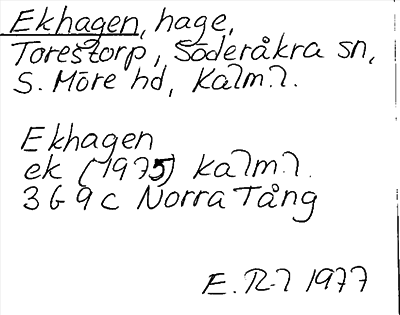 Ekhagen, hage,
Torestorp, Söderåkra sn,
S. Möre hd, Kalm. l.
Ekhagen
ek (1975) Kalm. l.
3 G 9 c Norra Tång
E. R-l 1977